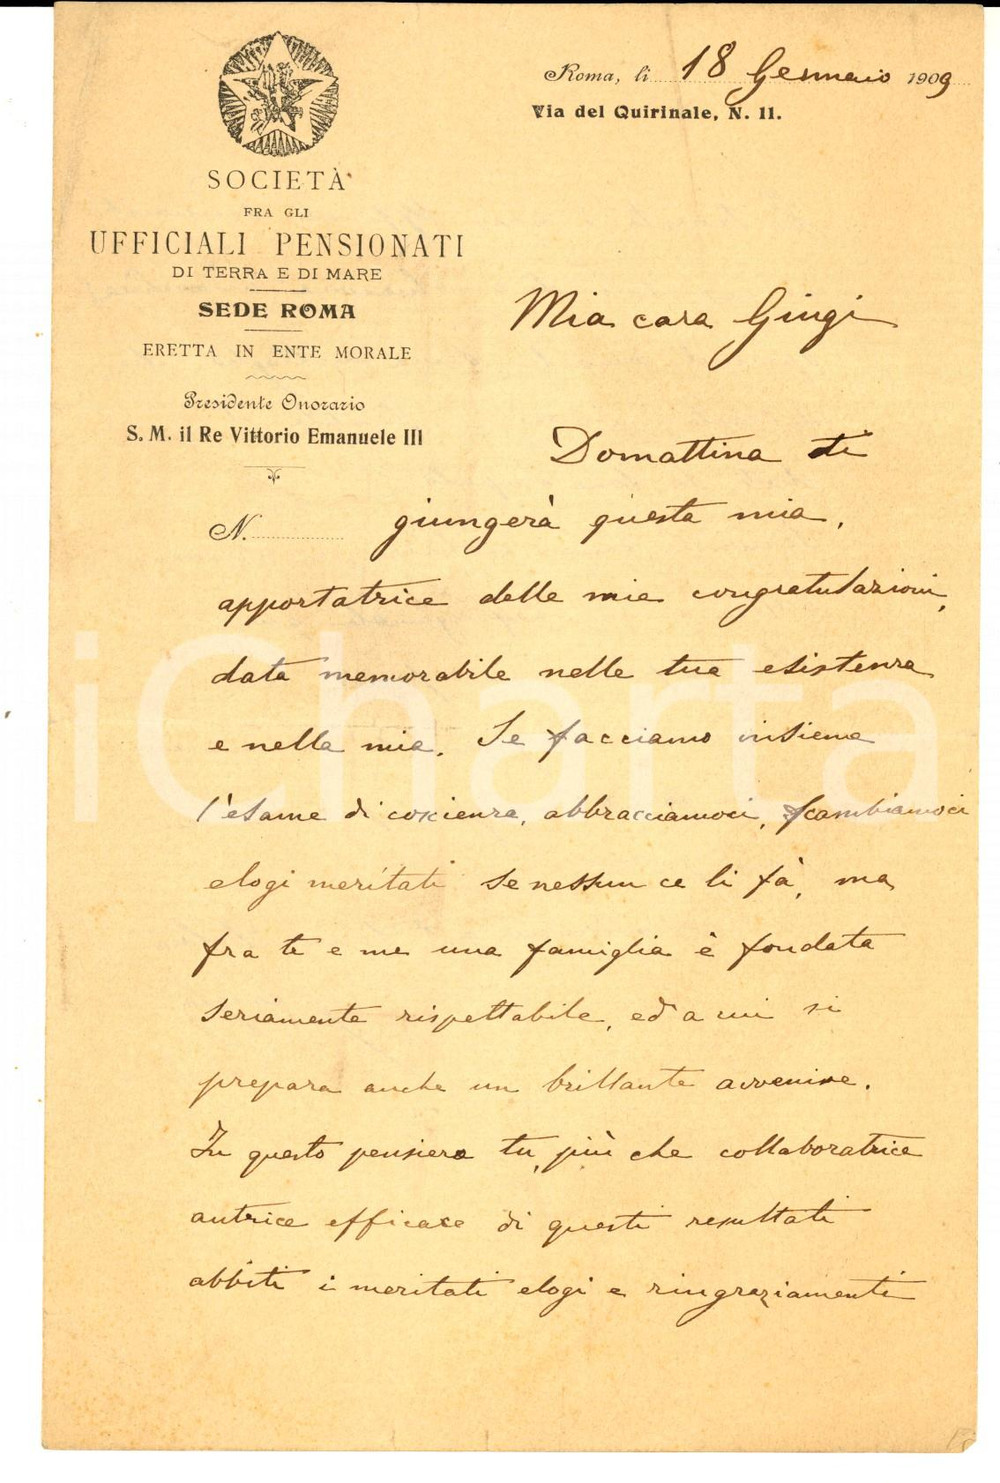 Roma, li 18 Gennaio 1909
Via del Quirinale, N. 11.
SOCIETÀ
FRA GLI
UFFICIALI PENSIONATI
DI TERRA E DI MARE
SEDE ROMA
ERETTA IN ENTE MORALE
Presidente Onorario
S. M. il Re Vittorio Emanuele III
N.
Mia cara Giugi
Domattina ti
giungerà questa mia,
apportatrice delle mie congratulazioni,
data memorabile nella tua esistenza
e nella mia. Se facciamo insieme
l'esame di coscienza, abbracciamoci, scambiamoci
elogi meritati se nessun ce li fà, ma
fra te e me una famiglia è fondata
seriamente rispettabile, ed a cui si
prepara anche un brillante avvenire.
In questo pensiero tu, più che collaboratrice
autrice efficace di questi resultati
abbiti i meritati elogi e ringraziamenti
iCharta